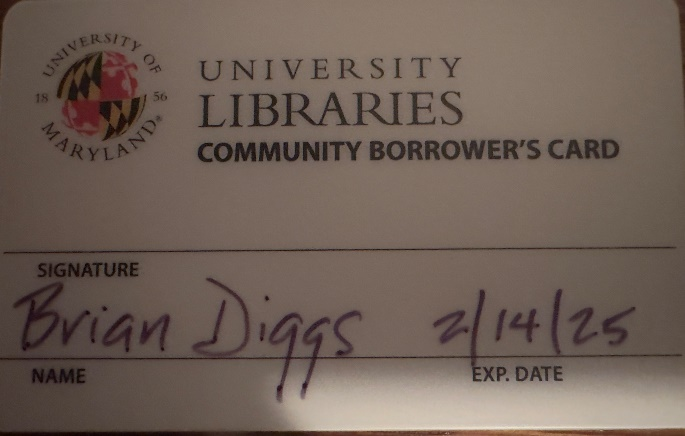 UNIVERSITY OF
18 56
MARYLAND®
UNIVERSITY
LIBRARIES
COMMUNITY BORROWER'S CARD
SIGNATURE
Brian Diggs 2/14/25
NAME EXP. DATE